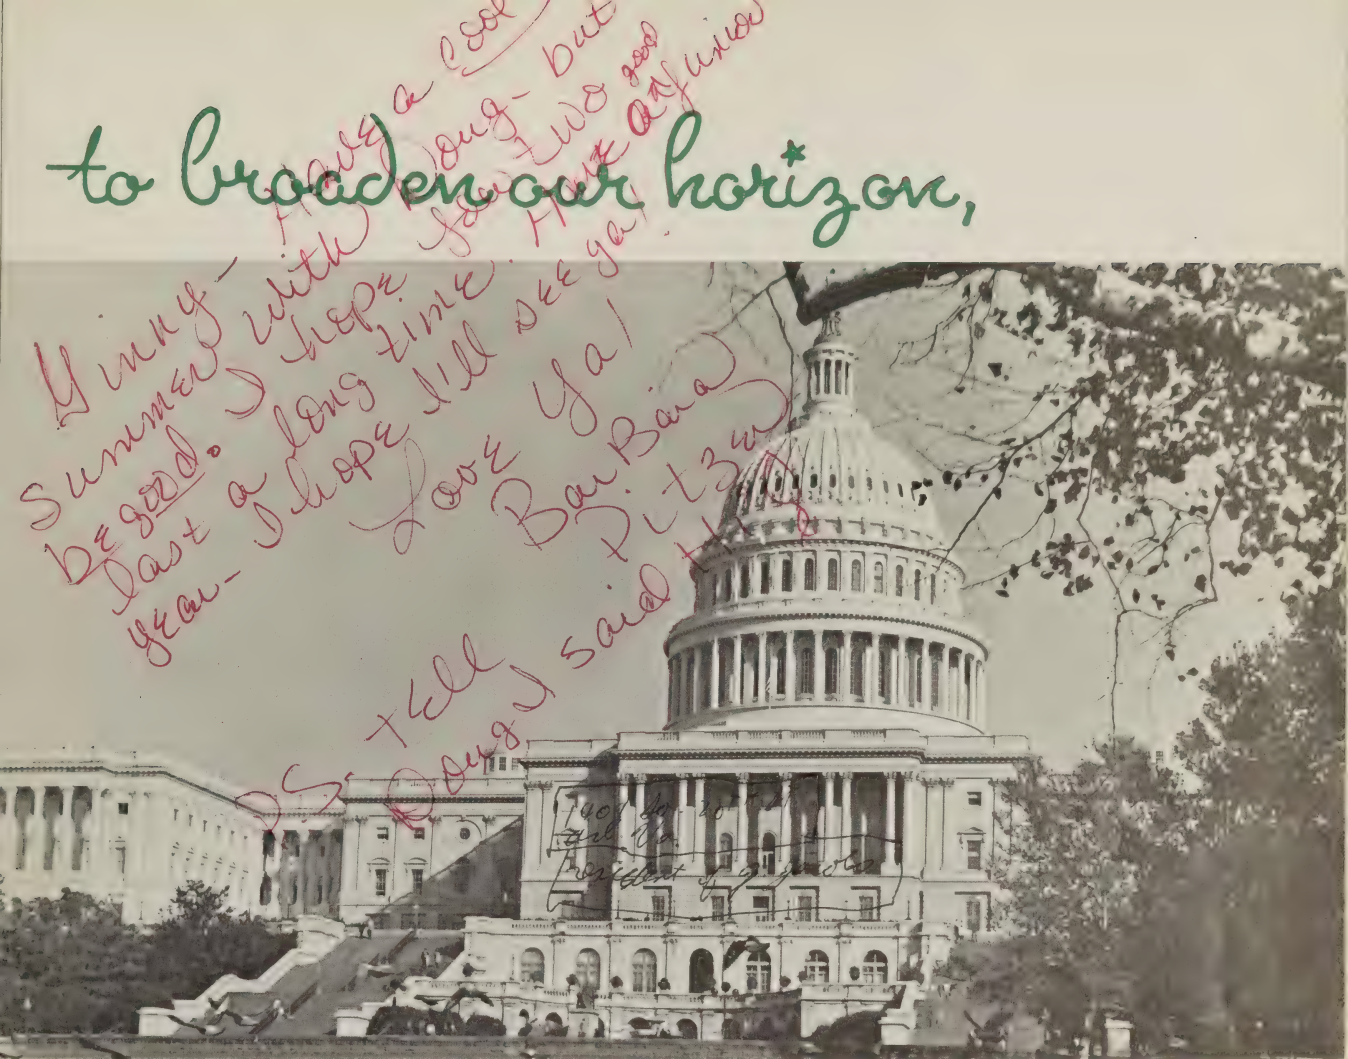 to broaden our horizon,
Ginny - Have a cool
summer with Doug - but
be good. I hope you two
last a long time. Have a good
year - I hope I'll see ya!
Love Ya!
BarBara
Pitzer
P.S. Tell
Doug I said Hi
President of